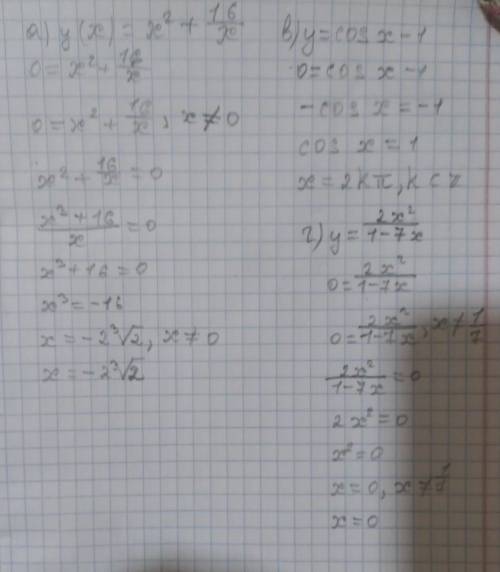 а) y(x) = x² + 16/x
0 = x² + 16/x
0 = x² + 16/x, x ≠ 0
x² + 16/x = 0
x³ + 16/x = 0
x³ + 16 = 0
x³ = -16
x = -2∛2, x ≠ 0
x = -2∛2
в) y = cos x - 1
0 = cos x - 1
-cos x = -1
cos x = 1
x = 2kπ, k ∈ z
г) y = 2x²/1-7x
0 = 2x²/1-7x
0 = 2x²/1-7x, x ≠ 1/7
2x²/1-7x = 0
2x² = 0
x² = 0
x = 0, x ≠ 1/7
x = 0